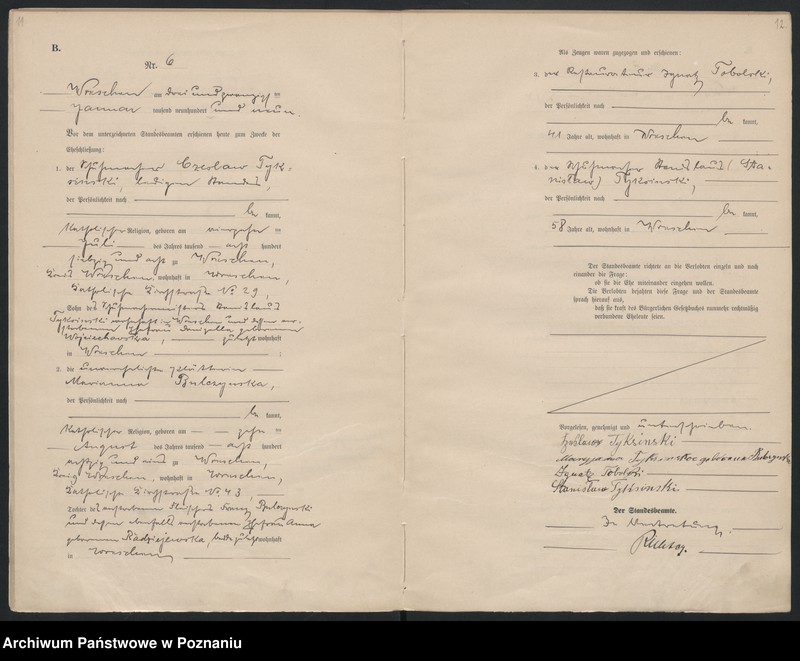 11
B.
Nr. 6
Wreschen am drei und zwanzigsten
Januar tausend neunhundert und neun.
Vor dem unterzeichneten Standesbeamten erschienen heute zum Zwecke der
Eheschließung:
1. der Schuhmacher Czeslaw Tyk=
sinski, ledigen Standes,
der Persönlichkeit nach
be kannt,
katholischer Religion, geboren am vierzehnten
Juli des Jahres tausend acht hundert
siebzig und acht zu Wreschen,
Kreis Wreschen, wohnhaft in Wreschen,
Katholische Kirchstraße No 29,
Sohn des Schuhmachermeisters Stanislaus
Tyksinski wohnhaft in Wreschen und dessen ver=
storbenen Ehefrau geborenen
Wojciechowska, zuletzt wohnhaft
in Wreschen ;
2. die unverehelichte
Marianna
der Persönlichkeit nach
be kannt,
katholischer Religion, geboren am zehnten
August des Jahres tausend acht hundert
achtzig und eins zu Wreschen,
Kreis Wreschen, wohnhaft in Wreschen,
Katholische Kirchstraße No 43,
Tochter des verstorbenen Franz
und dessen ebenfalls verstorbenen Ehefrau Anna
geborenen Radziejewska, beide zuletzt wohnhaft
in Wreschen
12
Als Zeugen waren zugezogen und erschienen:
3. der Restaurateur Ignatz Tobolski,
der Persönlichkeit nach
be kannt,
41 Jahre alt, wohnhaft in Wreschen
4. der Schuhmacher Stanislaus (Sta=
nislaw) Tyksinski,
der Persönlichkeit nach
be kannt,
58 Jahre alt, wohnhaft in Wreschen
Der Standesbeamte richtete an die Verlobten einzeln und nach
einander die Frage:
ob sie die Ehe miteinander eingehen wollen.
Die Verlobten bejahten diese Frage und der Standesbeamte
sprach hierauf aus,
daß sie kraft des Bürgerlichen Gesetzbuchs nunmehr rechtmäßig
verbundene Eheleute seien.
Vorgelesen, genehmigt und unterschrieben.
Tyksinski
geborene
Ignatz Tobolski
Stanislaw Tyksinski
Der Standesbeamte.
In Vertretung.
Archiwum Państwowe w Poznaniu